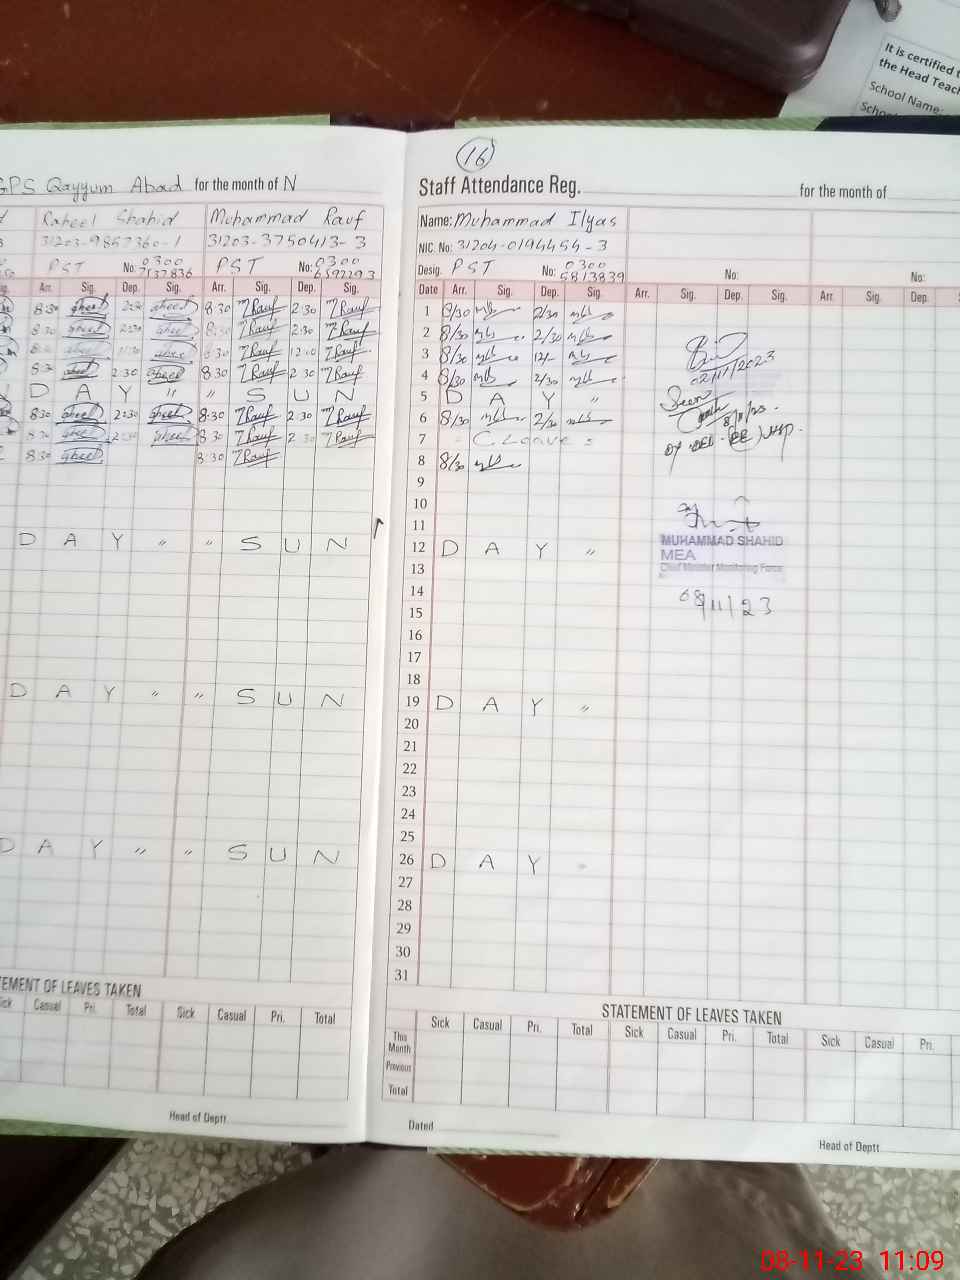 It is certified t
the Head Teach
School Name:
Scho
GPS Qayyum Abad for the month of N
Raheel Shahid Muhammad Rauf
31203-9857360-1 31203-3750413-3
PST No: 0300 7537836 PST No: 0300 6592293
Arr. Sig. Dep. Sig. Arr. Sig. Dep. Sig.
8:30 2:30 8:30 Rauf 2:30 Rauf
8:30 2:30 8:30 Rauf 2:30 Rauf
8:30 Rauf 12:00 Rauf
8:30 2:30 8:30 Rauf 2:30 Rauf
D A Y " " S U N
8:30 2:30 8:30 Rauf 2:30 Rauf
8:30 2:30 8:30 Rauf 2:30 Rauf
8:30 8:30 Rauf
D A Y " " S U N
D A Y " " S U N
D A Y " " S U N
TEMENT OF LEAVES TAKEN
ick Casual Pri. Total Sick Casual Pri. Total
Head of Deptt.
16
Staff Attendance Reg. for the month of
Name: Muhammad Ilyas
NIC. No: 31204-0194454-3
Desig. PST No: 0300 5813839 No: No:
Date Arr. Sig. Dep. Sig. Arr. Sig. Dep. Sig. Arr. Sig. Dep. S
1 8/30 2/30
2 8/30 2/30
3 8/30 12/-
4 8/30 2/30
5 D A Y "
6 8/30 2/30
7 C. Leave
8 8/30
9
10
11
12 D A Y "
13
14
15
16
17
18
19 D A Y "
20
21
22
23
24
25
26 D A Y "
27
28
29
30
31
02/11/2023
Seen
8/11/23.
MUHAMMAD SHAHID
MEA
Chief Minister Monitoring Force
08/11/23
STATEMENT OF LEAVES TAKEN
Sick Casual Pri. Total Sick Casual Pri. Total Sick Casual Pri.
This Month
Previous
Total
Dated
Head of Deptt
08-11-23 11:09